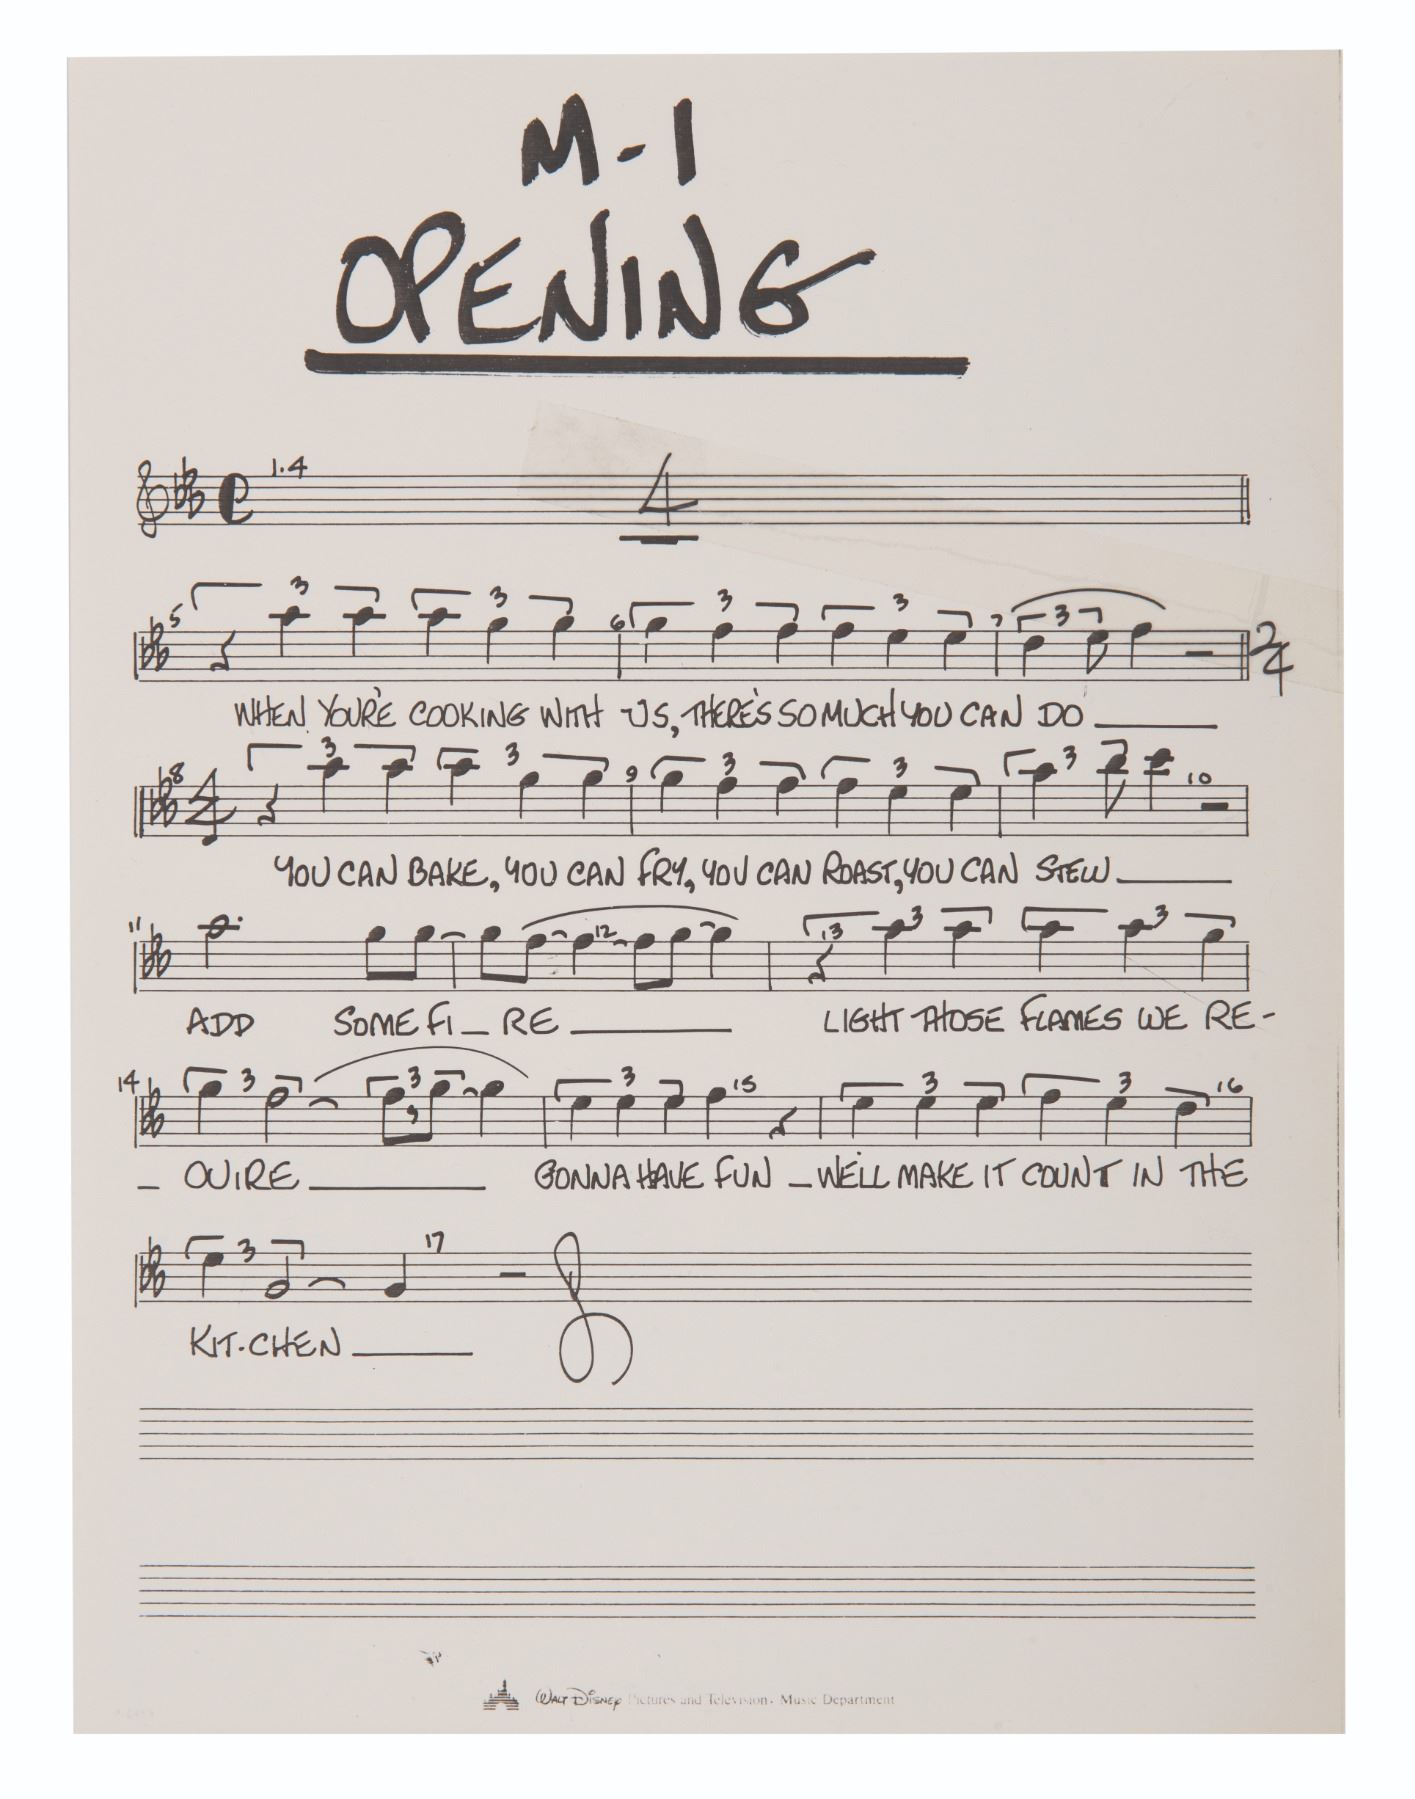 M-1
OPENING
1.4
4
5 3 3 6 3 3 7 3 2/4
WHEN YOU'RE COOKING WITH US, THERE'S SO MUCH YOU CAN DO
8 4/4 3 3 9 3 3 3 10
YOU CAN BAKE, YOU CAN FRY, YOU CAN ROAST, YOU CAN STEW
11 12 13 3 3
ADD SOME FI_RE LIGHT THOSE FLAMES WE RE-
14 3 3 3 15 3 3 16
_ QUIRE GONNA HAVE FUN _ WE'LL MAKE IT COUNT IN THE
3 17
KIT-CHEN
WALT DISNEY Pictures and Television · Music Department